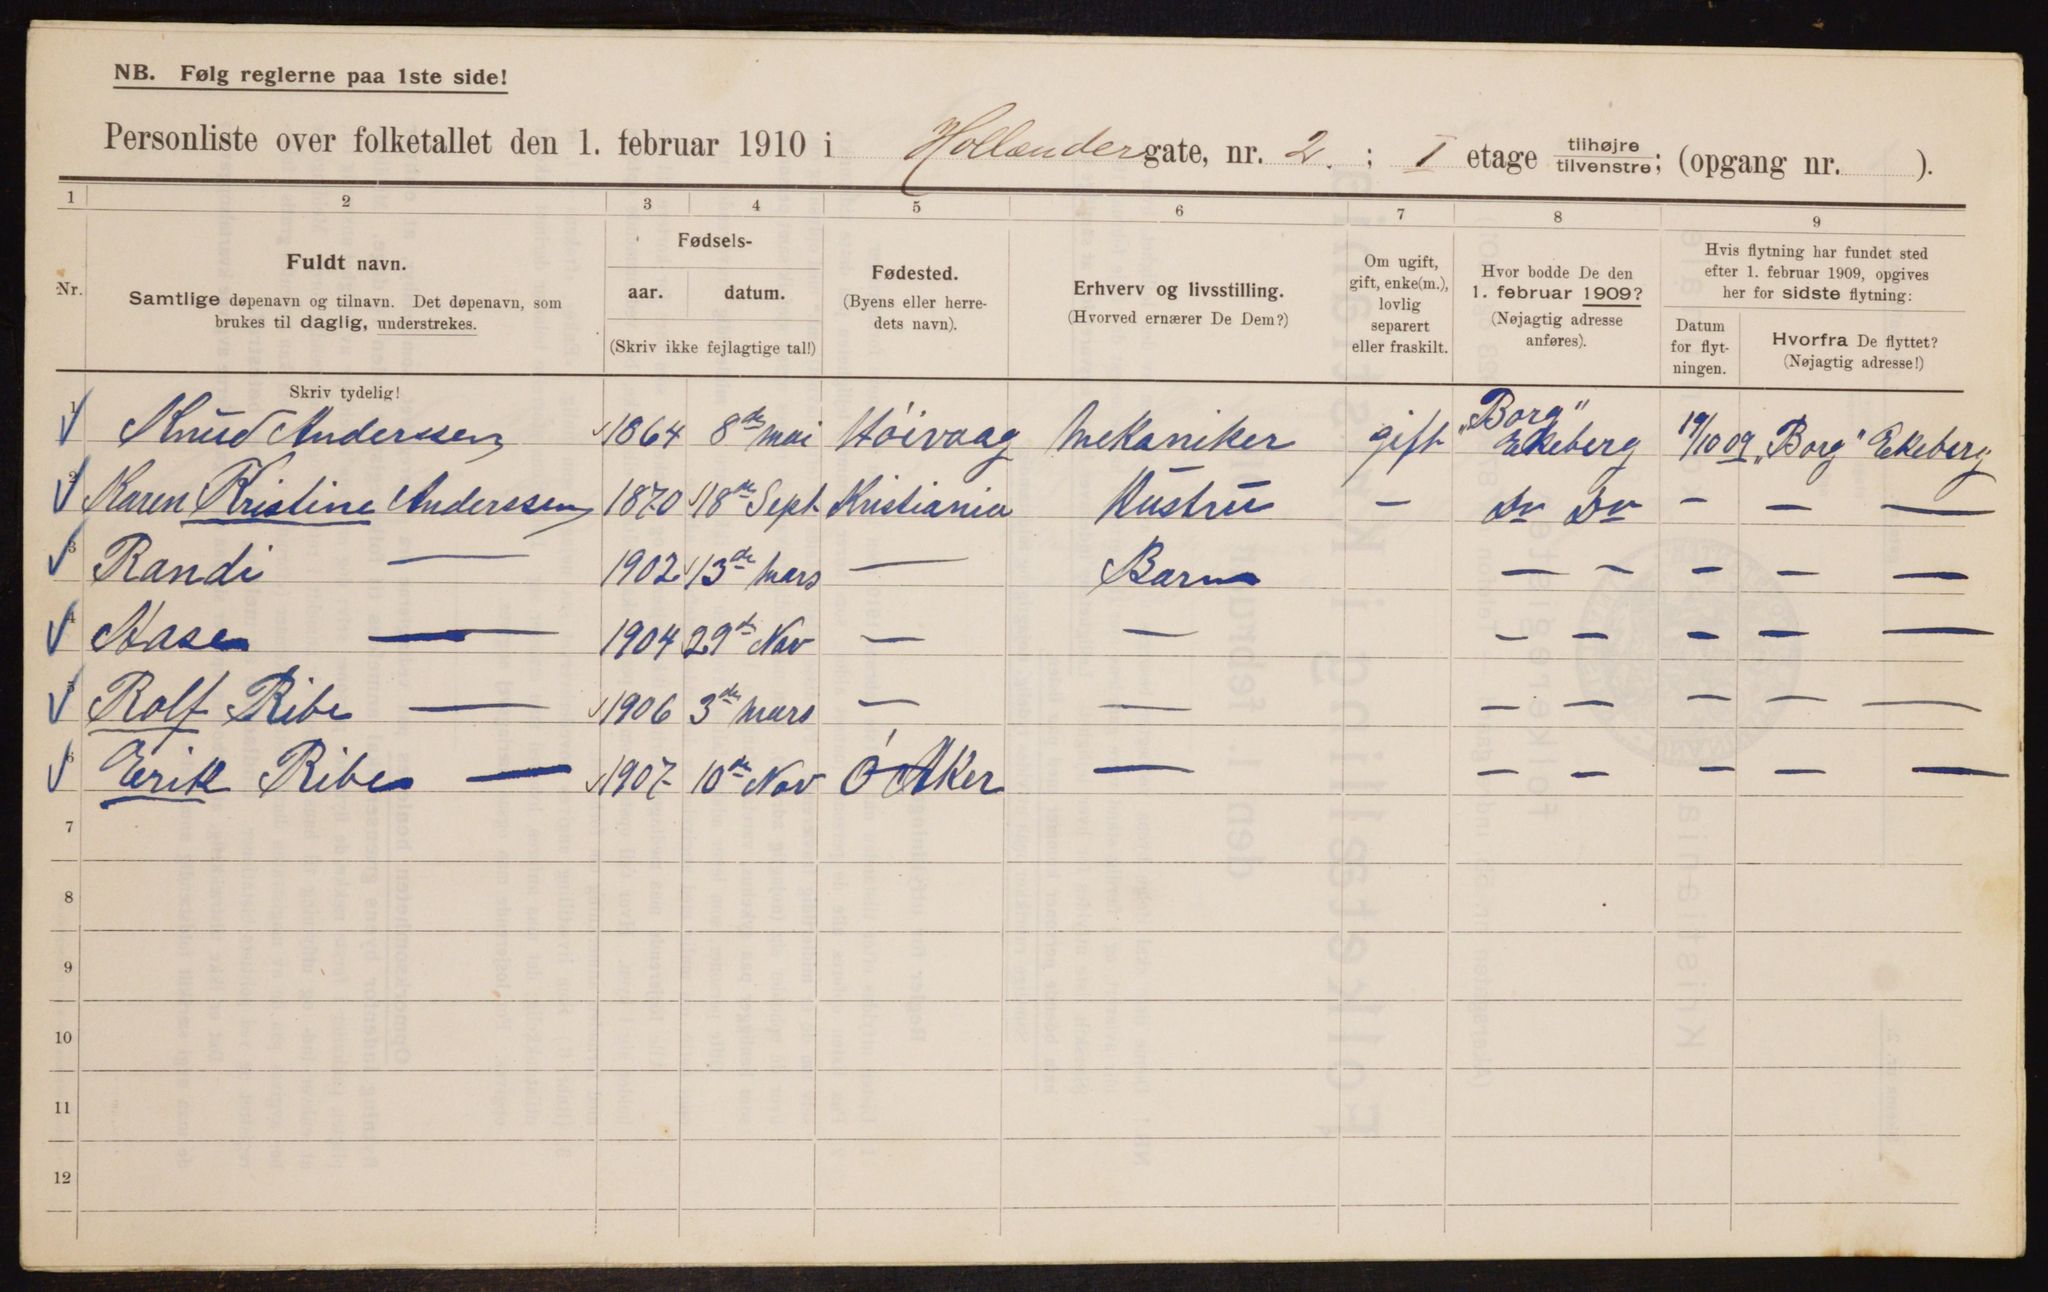 NB. Følg reglerne paa 1ste side!
Personliste over folketallet den 1. februar 1910 i Hollændergate, nr. 2. ; I etage tilhøjre tilvenstre; (opgang nr. ).
1 2 3 4 5 6 7 8 9
Nr.
Fuldt navn.
Samtlige døpenavn og tilnavn. Det døpenavn, som
brukes til daglig, understrekes.
Skriv tydelig!
Fødsels-
aar. datum.
(Skriv ikke fejlagtige tal!)
Fødested.
(Byens eller herre-
dets navn).
Erhverv og livsstilling.
(Hvorved ernærer De Dem?)
Om ugift,
gift, enke(m.),
lovlig
separert
eller fraskilt.
Hvor bodde De den
1. februar 1909?
(Nøjagtig adresse
anføres).
Hvis flytning har fundet sted
efter 1. februar 1909, opgives
her for sidste flytning:
Datum
for flyt-
ningen.
Hvorfra De flyttet?
(Nøjagtig adresse!)
1 Knud Anderssen 1864 8de mai Höivaag Mekaniker gift "Borg" Ekeberg 19/10 09 "Borg" Ekeberg
2 Karen Kristine Anderssen 1870 18de Sept Kristiania Hustru — Do Do — — —
3 Randi — 1902 13de Mars — Barn — — — — —
4 Aase — 1904 29de Nov — — — — — — —
5 Rolf Ribe — 1906 3de Mars — — — — — — —
6 Erik Ribe — 1907 10de Nov Ö Aker — — — — — —
7
8
9
10
11
12